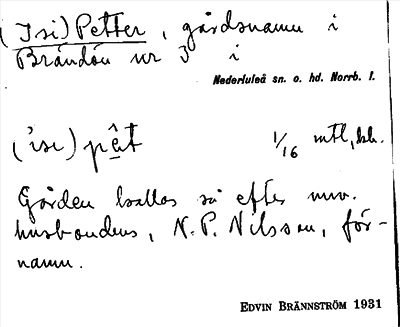 (Isi) Petter, gårdsnamn i
Brändön nr 3 i
Nederluleå sn. o. hd. Norrb. l.
('isi) pêt 1/16 mtl, kl.
Gården kallas så efter nuv.
husbondens, N. P. Nilsson, för-
namn.
EDVIN BRÄNNSTRÖM 1931